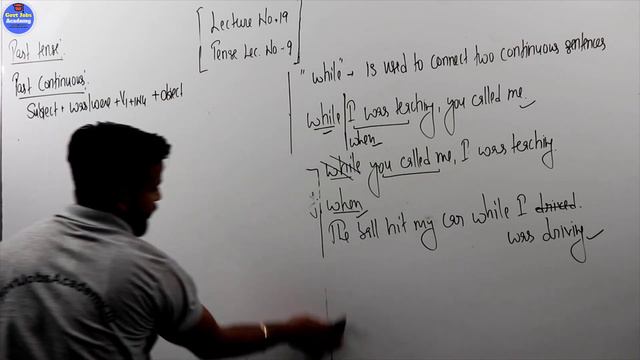 Govt Jobs
Academy
Lecture No.19
Tense Lec. No-9
Past tense:
Past Continuous:
Subject + was/were + V1+ing + object
"while" - Is used to connect two continuous sentences
while I was teaching, you called me
when
while you called me, I was teaching
when
The ball hit my car while I drived.
was driving